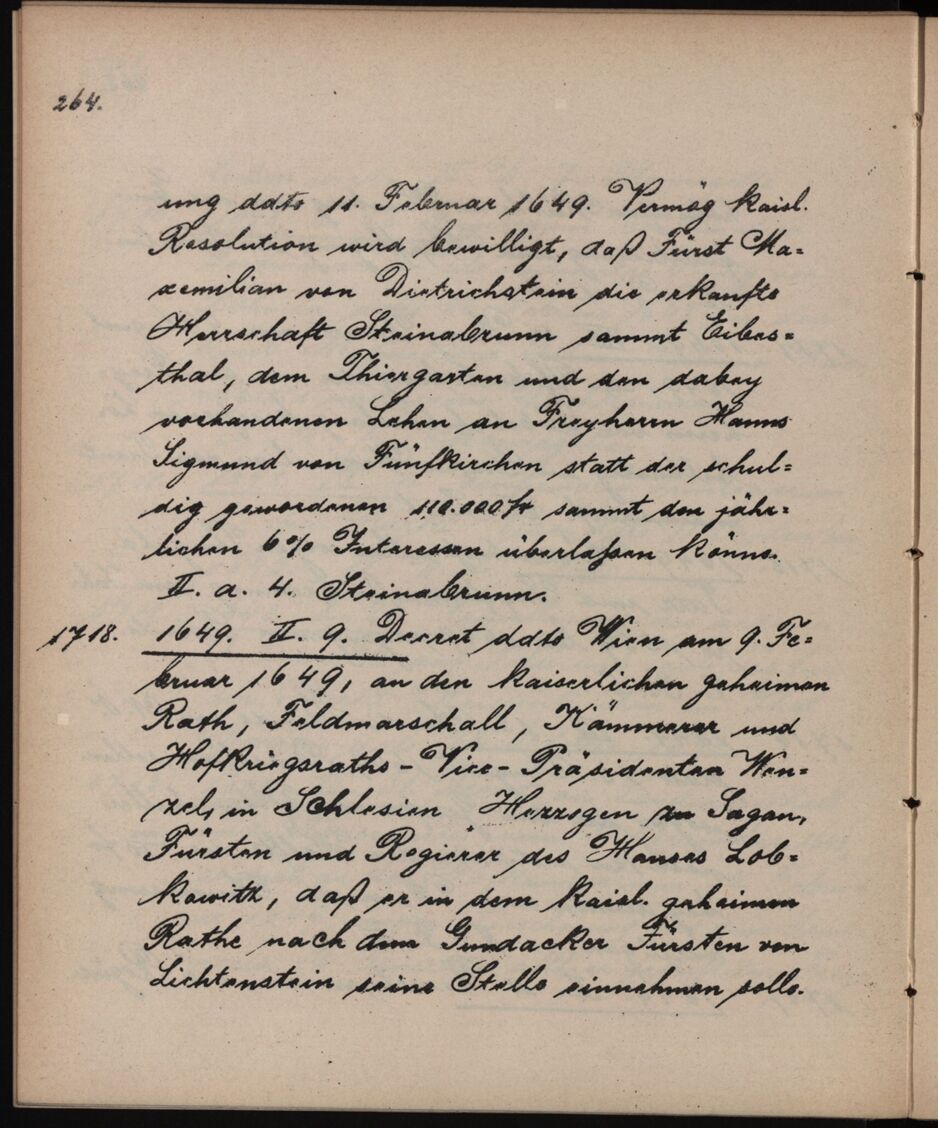 264.
ung ddto 11. Februar 1649. Vermög kaisl.
Resolution wird bewilligt, daß Fürst Ma=
xemilian von Dietrichstein die erkaufte
Herrschaft Steinabrunn sammt Eibes=
thal, dem Thiergarten und den dabey
vorhandenen Lehen an Freyherrn Hanns
Sigmund von Fünfkirchen statt der schul=
dig gewordenen 110.000 fr sammt den jähr=
lichen 6% Interessen überlaßen könne.
II. a. 4. Steinabrunn.
1718. 1649. II. 9. Decret ddto Wien am 9. Fe=
bruar 1649, an den kaiserlichen geheimen
Rath, Feldmarschall, Kämmerer und
Hofkriegsraths-Vice-Präsidenten Wen=
zel, in Schlesien Herzogen zu Sagan,
Fürsten und Regierer des Hauses Lob=
kowitz, daß er in dem kaisl. geheimen
Rathe nach dem Gundacker Fürsten von
Lichtenstein seine Stelle einnehmen solle.